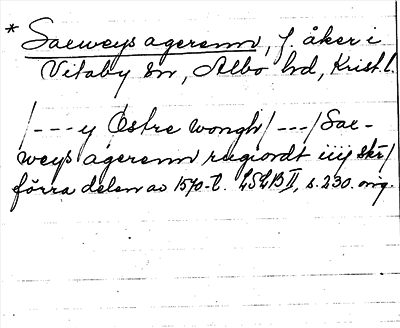 * Saeweys agerenn, f. åker i
Vitaby sn, Albo hd, Krist. l.
/---y Östre wongh/---/Sae-
weys agerenn rugiordt iiij skr/
förra delen av 1570-t. LSLB II, s. 230. orig.